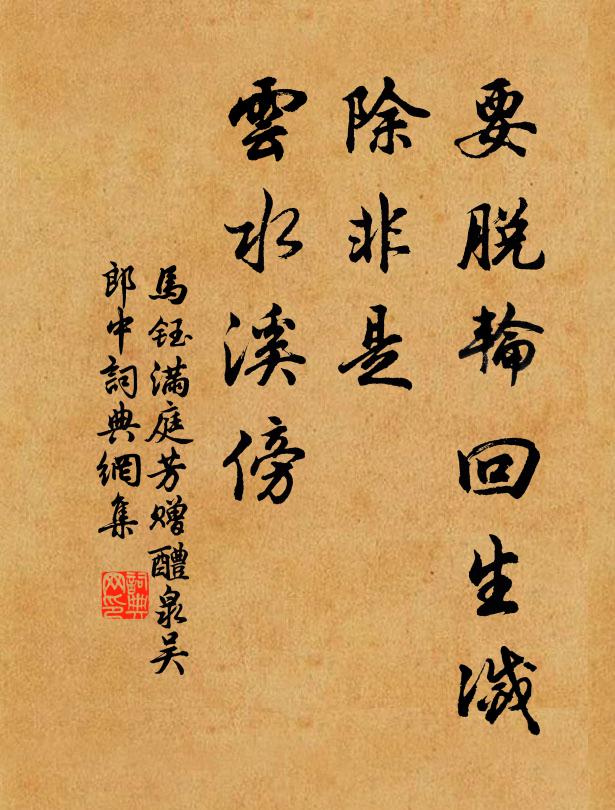 要脱輪回生滅
除非是
雲水溪傍
馬鈺滿庭芳贈醴泉吴
郎中詞典網集
詞典
网印